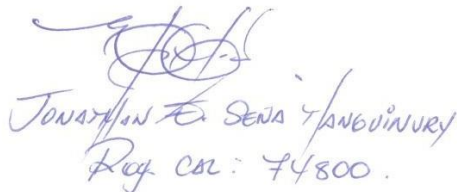 JONATHAN E. SEÑA YANQUINURY
Reg. CAL: 74800.